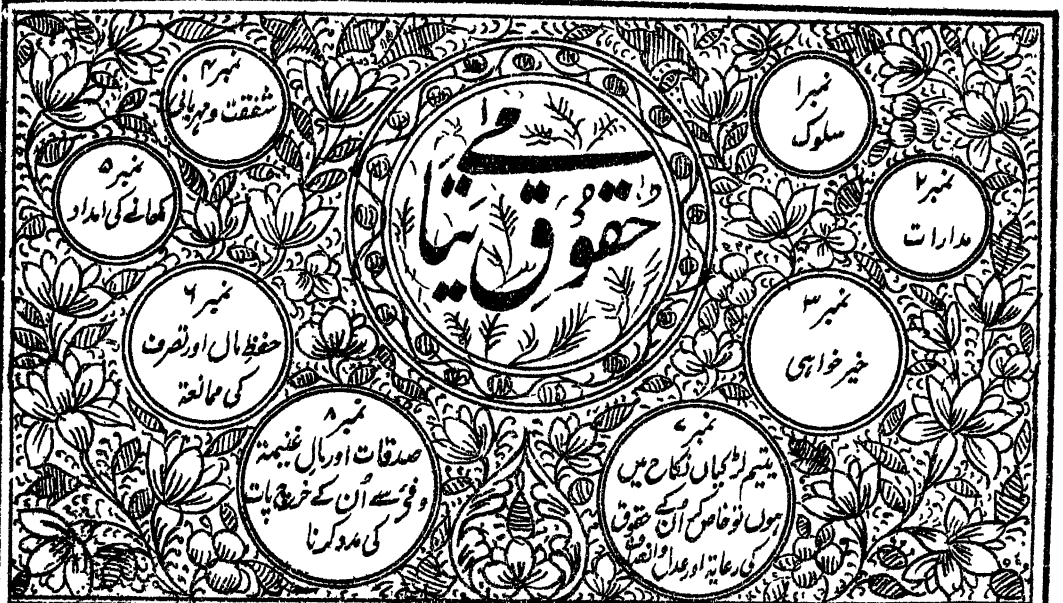 حقوقُ یتامیٰ
نمبر ۱
سلوک
نمبر ۲
مدارات
نمبر ۳
خیر خواہی
نمبر ۴
شفقت و مہربانی
نمبر ۵
کھانے کی امداد
نمبر ۶
حفظِ مال اور تصرف
کی ممانعۃ
نمبر ۷
یتیم لڑکیاں نکاح میں
ہوں تو خاص کر اُن کے حقوق
کی رعایۃ اور عدل و انصاف
نمبر ۸
صدقات اور مالِ غنیمۃ
و فئے سے اُن کے
کی مدد کرنا